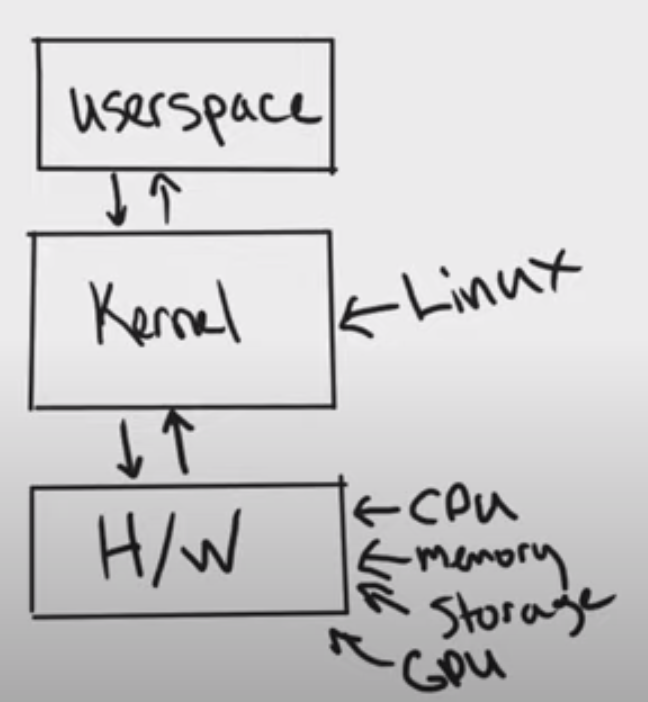 userspace
Kernel
Linux
H/W
CPU
memory
Storage
GPU